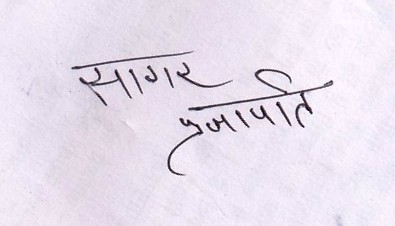 सागर
प्रजापति